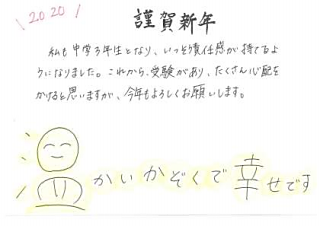 2020
謹賀新年
私も中学3年生となり、いっそう責任感が持てるよ
うになりました。これから、受験があり、たくさん心配を
かけると思いますが、今年もよろしくお願いします。
かいかぞくで幸せです